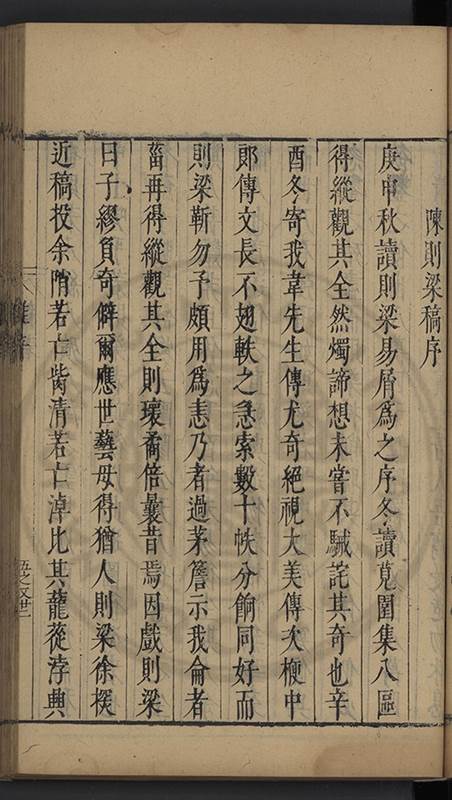 陳則梁稿序
庚申秋讀則梁易屑為之序冬讀莧園集八區
得縱觀其全然燭諦想未嘗不駴詫其奇也辛
酉冬寄我韋先生傳尤奇絕視大美傳次楩中
郎傳文長不翅軼之急索數十帙分餉同好而
則梁靳勿予頗用為恚乃者過茅簷示我侖者
菑再得縱觀其全則瓌矞倍曩昔焉因戲則梁
曰子繆負奇僻爾應世藝毋得猶人則梁徐探
近稿投余隋若亡胔清若亡淖比其蘢蓯浡興